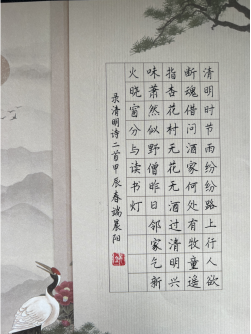 清明时节雨纷纷路上行人欲
断魂借问酒家何处有牧童遥
指杏花村无花无酒过清明兴
味萧然似野僧昨日邻家乞新
火晓窗分与读书灯
录清明诗二首甲辰春端晨阳